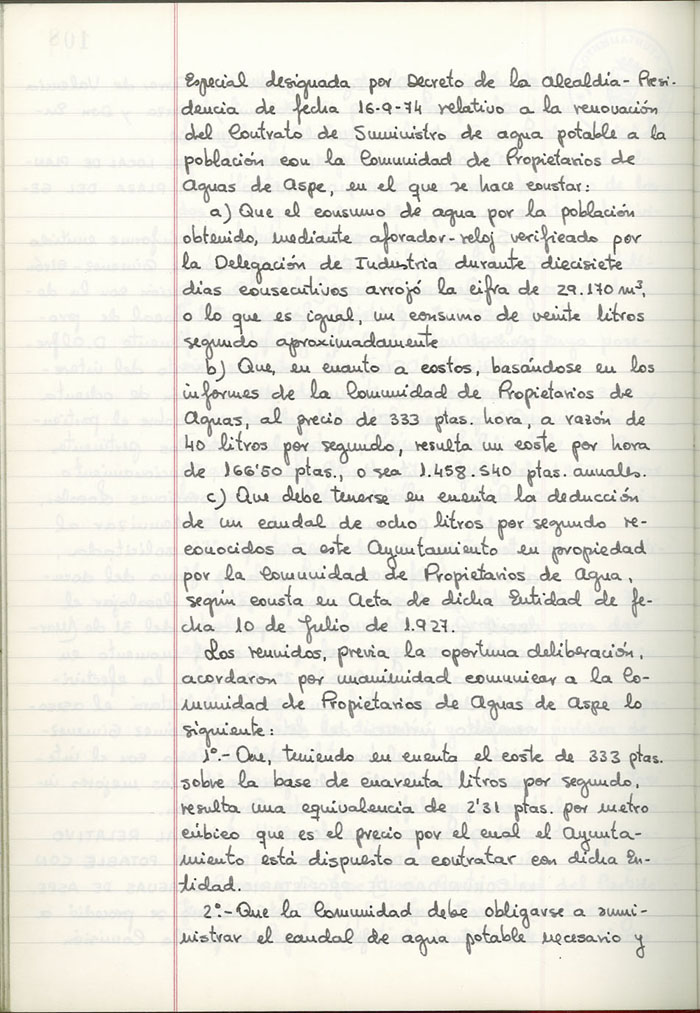 Especial designada por Decreto de la Alcaldía-Presi-
dencia de fecha 16-9-74 relativo a la renovación
del Contrato de Suministro de agua potable a la
población con la Comunidad de Propietarios de
Aguas de Aspe, en el que se hace constar:
a) Que el consumo de agua por la población
obtenido, mediante aforador-reloj verificado por
la Delegación de Industria durante diecisiete
días consecutivos arrojó la cifra de 29.170 m³,
o lo que es igual, un consumo de veinte litros
segundo aproximadamente
b) Que, en cuanto a costos, basándose en los
informes de la Comunidad de Propietarios de
Aguas, al precio de 333 ptas. hora, a razón de
40 litros por segundo, resulta un coste por hora
de 166'50 ptas., o sea 1.458.540 ptas. anuales.
c) Que debe tenerse en cuenta la deducción
de un caudal de ocho litros por segundo re-
conocidos a este Ayuntamiento en propiedad
por la Comunidad de Propietarios de Agua,
según consta en Acta de dicha Entidad de fe-
cha 10 de Julio de 1.927.
Los reunidos, previa la oportuna deliberación,
acordaron por unanimidad comunicar a la Co-
munidad de Propietarios de Aguas de Aspe lo
siguiente:
1º.- Que, teniendo en cuenta el coste de 333 ptas.
sobre la base de cuarenta litros por segundo,
resulta una equivalencia de 2'31 ptas. por metro
cúbico que es el precio por el cual el Ayunta-
miento está dispuesto a contratar con dicha En-
tidad.
2º.- Que la Comunidad debe obligarse a sumi-
nistrar el caudal de agua potable necesario y